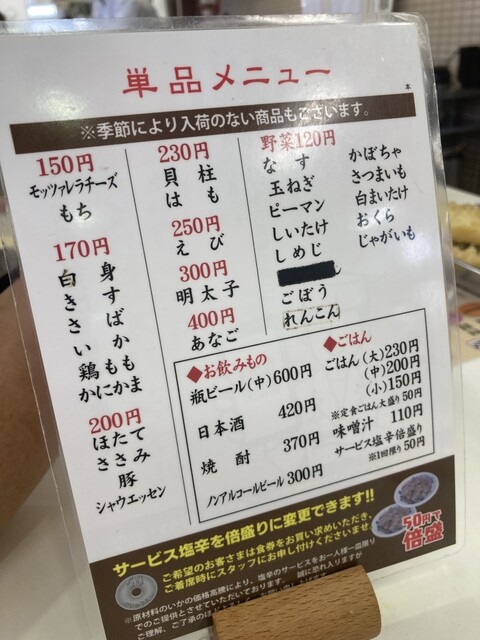 単品メニュー
本
※季節により入荷のない商品もございます。
150円
モッツァレラチーズ
もち
170円
白身
きす
さば
いか
鶏もも
かにかま
200円
ほたて
ささみ
豚
シャウエッセン
230円
貝柱
はも
250円
えび
300円
明太子
400円
あなご
野菜120円
なす
玉ねぎ
ピーマン
しいたけ
しめじ
ごぼう
れんこん
かぼちゃ
さつまいも
白まいたけ
おくら
じゃがいも
◆お飲みもの
瓶ビール(中)600円
日本酒 420円
焼酎 370円
ノンアルコールビール 300円
◆ごはん
ごはん(大)230円
(中)200円
(小)150円
※定食ごはん大盛り50円
味噌汁 110円
サービス塩辛倍盛り
※1回限り50円
サービス塩辛を倍盛りに変更できます!!
ご希望のお客さまは食券をお買い求めいただき、
ご着席時にスタッフにお申し付けくださいませ
50円で
倍盛
※原材料のいかの価格高騰により、塩辛のサービスをお一人様一皿限り
でのご提供とさせていただいております。誠に恐れ入りますが
ご理解、ご了承のほど